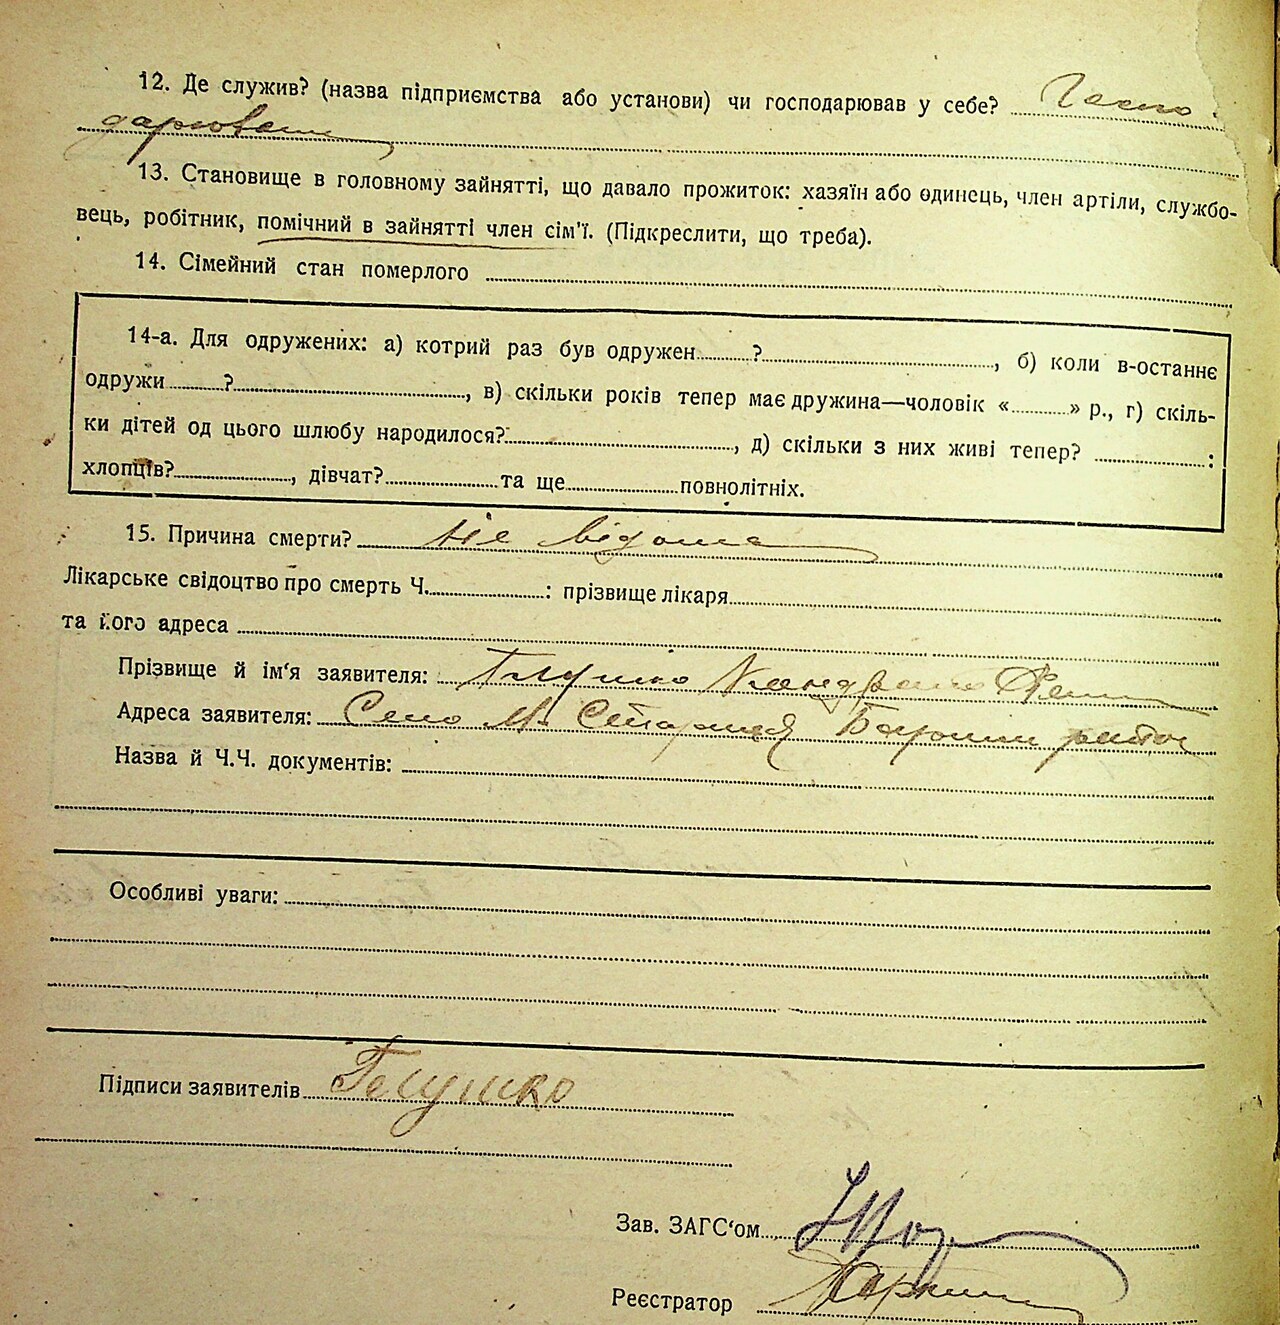 12. Де служив? (назва підприємства або установи) чи господарював у себе? Госпо-
дарював
13. Становище в головному зайнятті, що давало прожиток: хазяїн або одинець, член артіли, службо-
вець, робітник, помічний в зайнятті член сім'ї. (Підкреслити, що треба).
14. Сімейний стан померлого
14-а. Для одружених: а) котрий раз був одружен ?, б) коли в-останнє
одружи ?, в) скільки років тепер має дружина—чоловік « » р., г) скіль-
ки дітей од цього шлюбу народилося?, д) скільки з них живі тепер? :
хлопців?, дівчат? та ще повнолітніх.
15. Причина смерти? не відома
Лікарське свідоцтво про смерть Ч. : прізвище лікаря
та його адреса
Прізвище й ім'я заявителя: Глушко
Адреса заявителя: Село М. район
Назва й Ч.Ч. документів:
Особливі уваги:
Підписи заявителів Глушко
Зав. ЗАГС'ом
Реєстратор